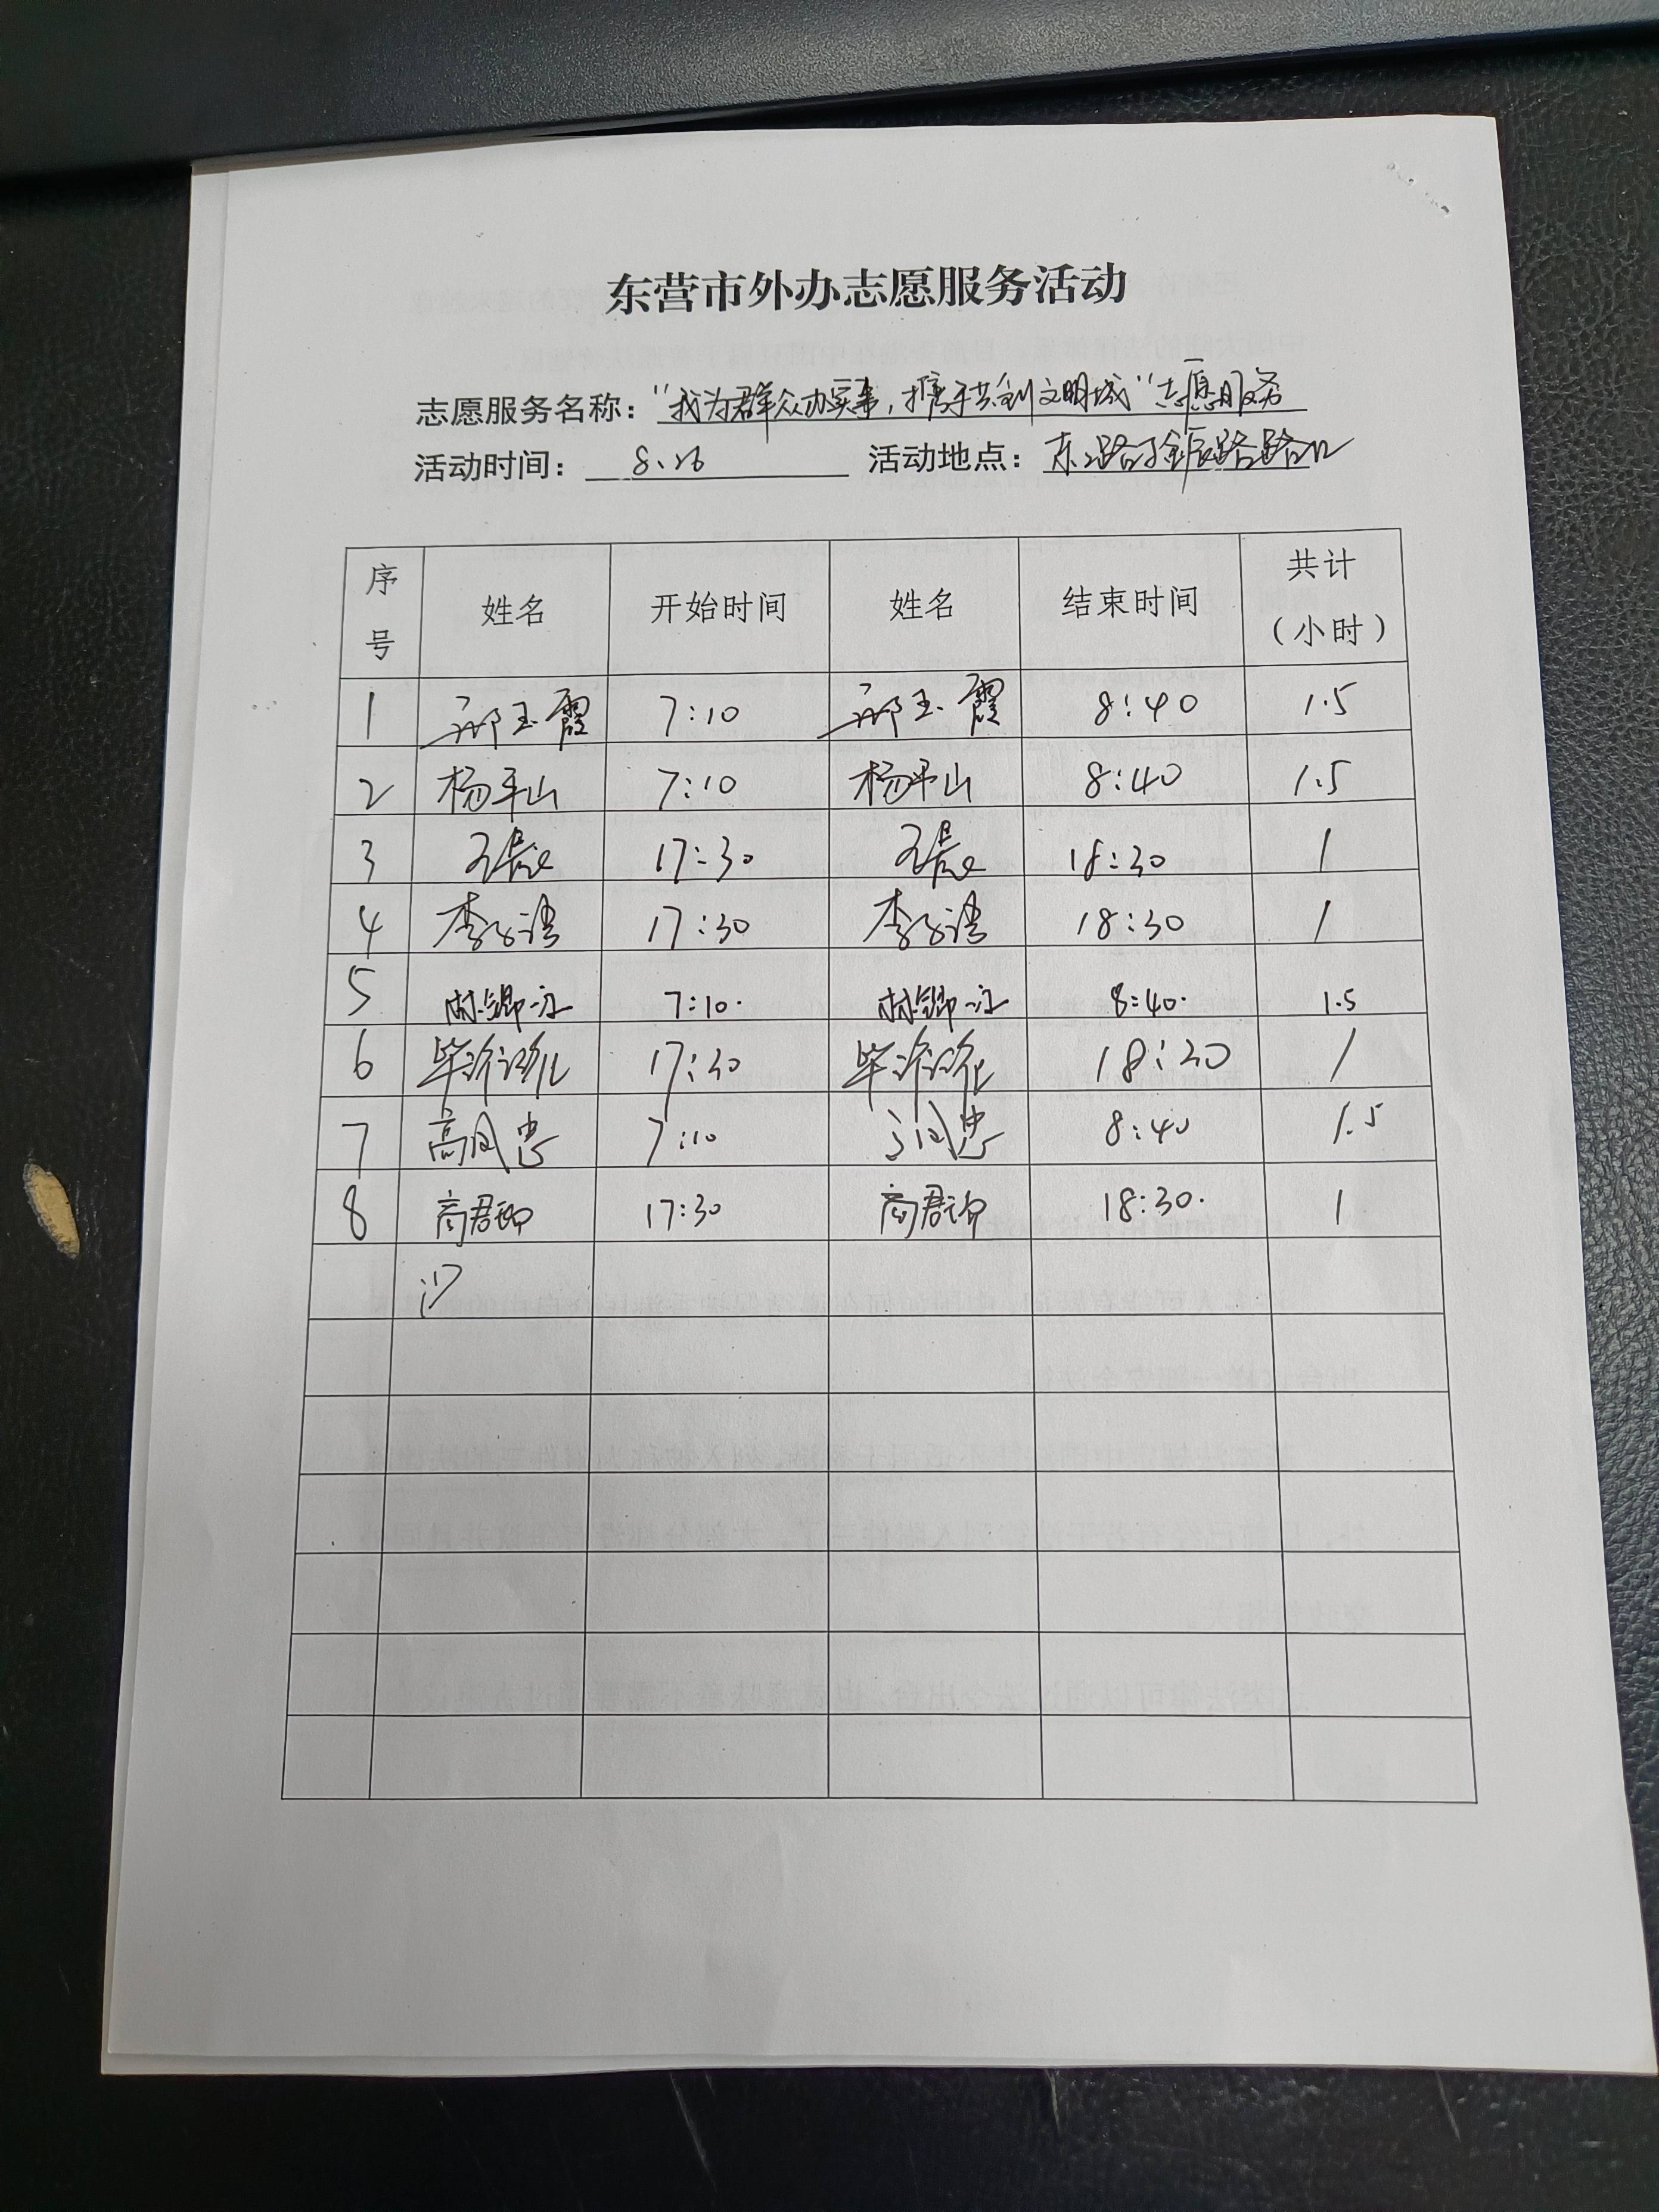 东营市外办志愿服务活动
志愿服务名称：“我为群众办实事，携手共创文明城”志愿服务
活动时间： 8.26 活动地点： 东二路 路路口
序号 姓名 开始时间 姓名 结束时间 共计（小时）
1 邢玉霞 7:10 邢玉霞 8:40 1.5
2 杨平山 7:10 杨平山 8:40 1.5
3 17:30 18:30 1
4 李 17:30 李 18:30 1
5 7:10. 8:40. 1.5
6 17:30 18:30 1
7 高凤忠 7:10 8:40 1.5
8 17:30 18:30. 1